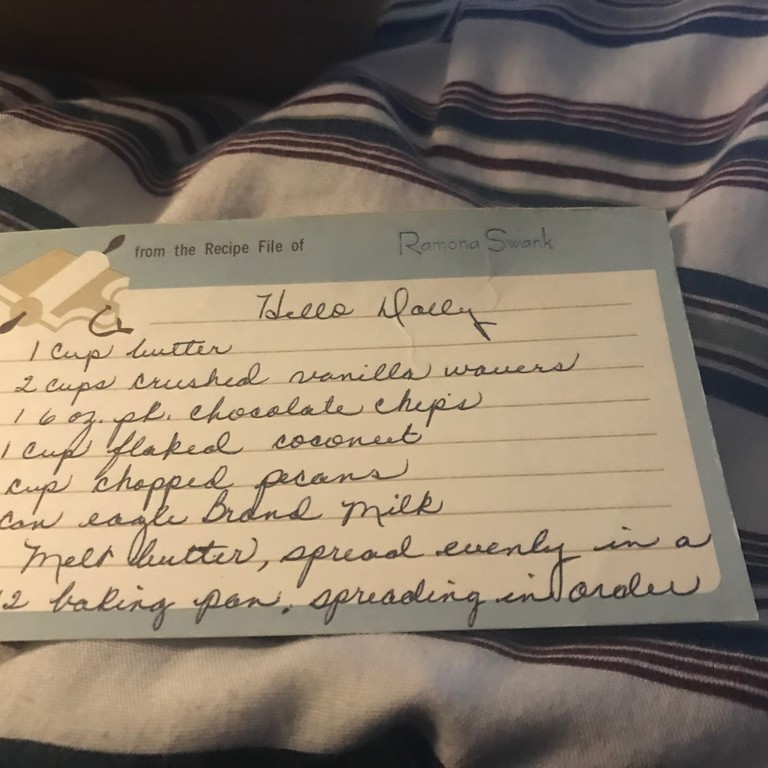 from the Recipe File of Ramona Swank
Hello Dolly
1 cup butter
2 cups crushed vanilla wavers
1 6 oz. pk. chocolate chips
1 cup flaked coconut
cup chopped pecans
can eagle Brand Milk
Melt butter, spread evenly in a
2 baking pan. spreading in order